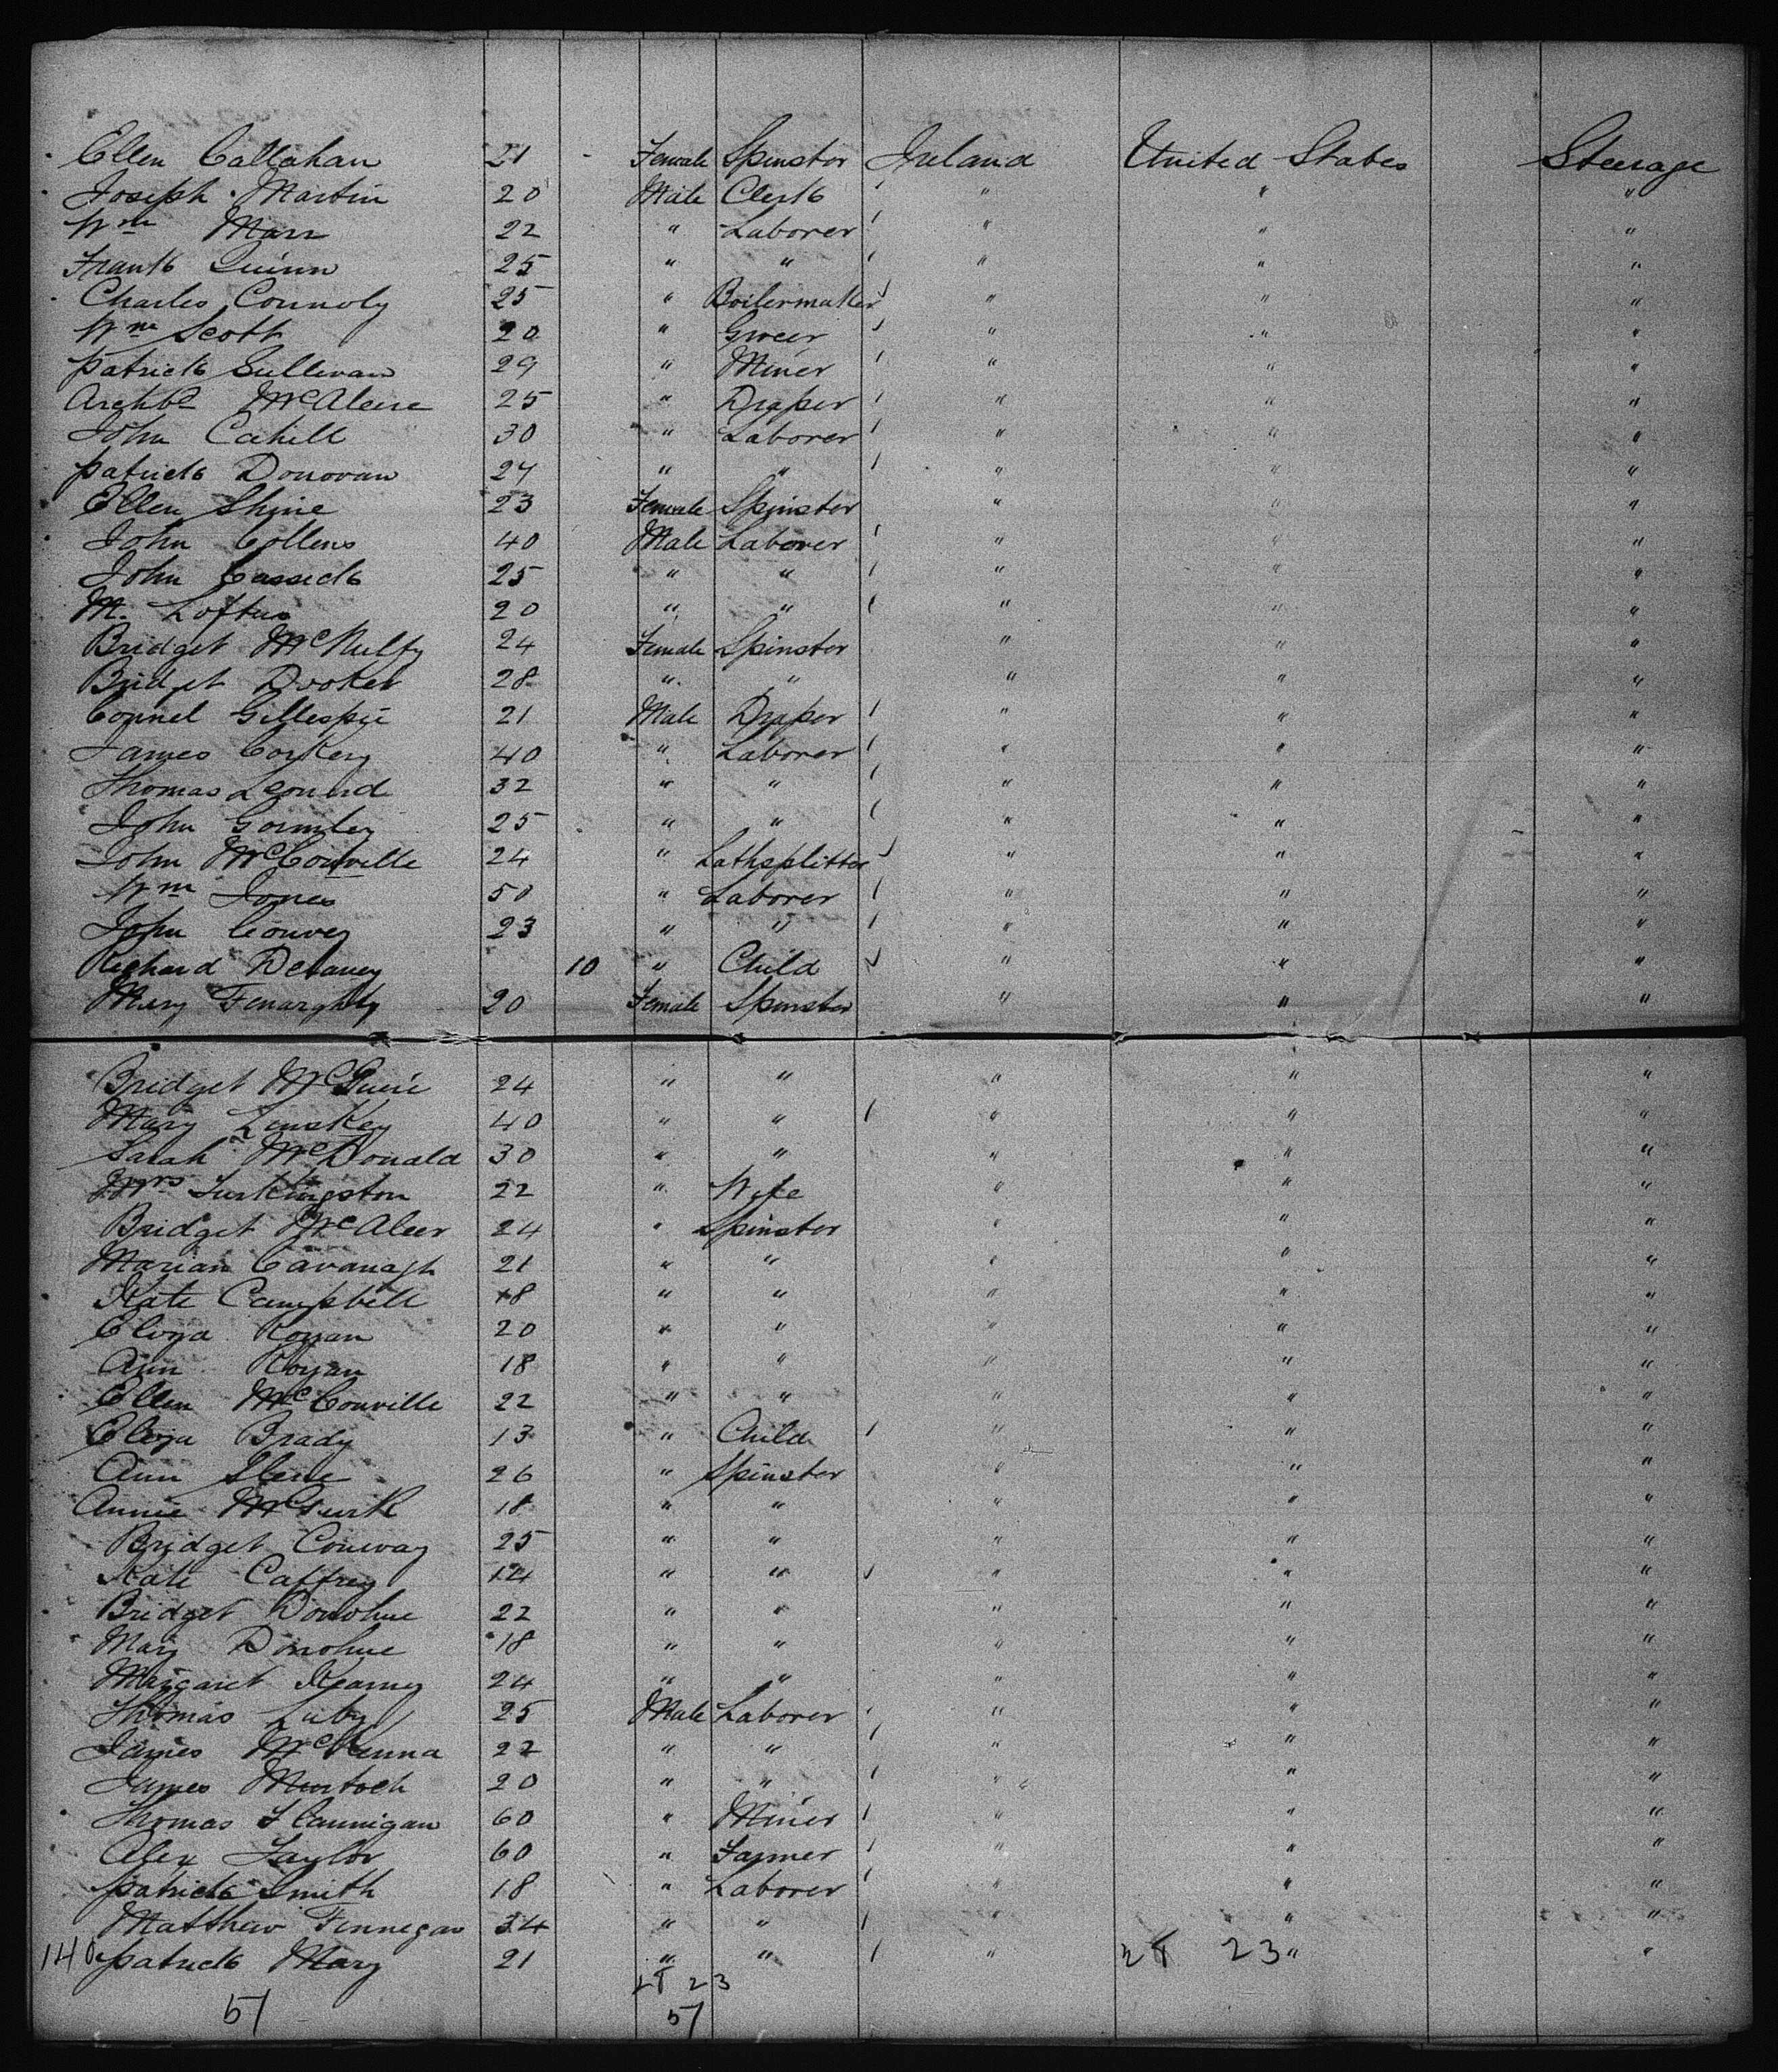 Ellen Callahan 21 - Female Spinster Ireland United States Steerage
Joseph Martin 20 Male Clerk " " "
Wm Marr 22 " Laborer " " "
Frank Quinn 25 " " " " "
Charles Connoly 25 " Boilermaker " " "
Wm Scott 20 " Grocer " " "
Patrick Sullivan 29 " Miner " " "
Archbd McAleese 25 " Draper " " "
John Cahill 30 " Laborer " " "
Patrick Donovan 24 " " " " "
Ellen Shine 23 Female Spinster " " "
John Collens 40 Male Laborer " " "
John Cassick 25 " " " " "
M. Loftus 20 " " " " "
Bridget McNulty 24 Female Spinster " " "
Bridget Dooker 28 " " " " "
Connel Gillespie 21 Male Draper " " "
James Corkery 40 " Laborer " " "
Thomas Leonard 32 " " " " "
John Gormley 25 " " " " "
John McConville 24 " Lathsplitter " " "
Wm Jones 50 " Laborer " " "
John Convey 23 " " " " "
Richard Delaney 10 " Child " " "
Mary Fenarghty 20 Female Spinster " " "
Bridget McGuire 24 " " " " "
Mary Linskey 40 " " " " "
Sarah McDonald 30 " " " " "
Mrs Turkingston 22 " Wife " " "
Bridget McAleer 24 " Spinster " " "
Marian Cavanagh 21 " " " " "
Kate Campbell 18 " " " " "
Eliza Rogan 20 " " " " "
Ann Rogan 18 " " " " "
Ellen McConville 22 " " " " "
Eliza Brady 13 " Child " " "
Ann 26 " Spinster " " "
Annie McGurk 18 " " " " "
Bridget Conway 25 " " " " "
Kate Caffrey 12 " " " " "
Bridget Donohue 22 " " " " "
Mary Donohue 18 " " " " "
Margaret Kearney 24 " " " " "
Thomas Luby 25 Male Laborer " " "
James McKenna 22 " " " " "
James Murtoch 20 " " " " "
Thomas Flannigan 60 " Miner " " "
Alex Taylor 60 " Farmer " " "
Patrick Smith 18 " Laborer " " "
Matthew Finnegan 34 " " " " "
140 Patrick Mary 21 " " " 28 23 " "
28 23
51 51